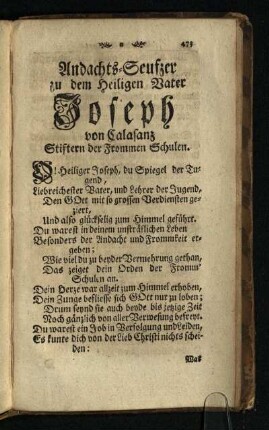 473
Andachts-Seufzer
zu dem Heiligen Vater
Joseph
von Calasanz
Stiftern der Frommen Schulen.
O! Heiliger Joseph, du Spiegel der Tu-
gend,
Liebreichester Vater, und Lehrer der Jugend,
Den GOtt mit so grossen Verdiensten ge-
ziert,
Und also glückselig zum Himmel geführt.
Du warest in deinem unsträflichen Leben
Besonders der Andacht und Frommkeit er-
geben:
Wie viel du zu beyder Vermehrung gethan,
Das zeiget dein Orden der Fromm'
Schulen an.
Dein Herze war allzeit zum Himmel erhoben,
Dein Zunge beflisse sich GOtt nur zu loben;
Drum seynd sie auch beyde bis jetzige Zeit
Noch gänzlich von aller Verwesung befreyt.
Du warest ein Job in Verfolgung und Leiden,
Es kunte dich von der Lieb Christi nichts schei-
den:
Was